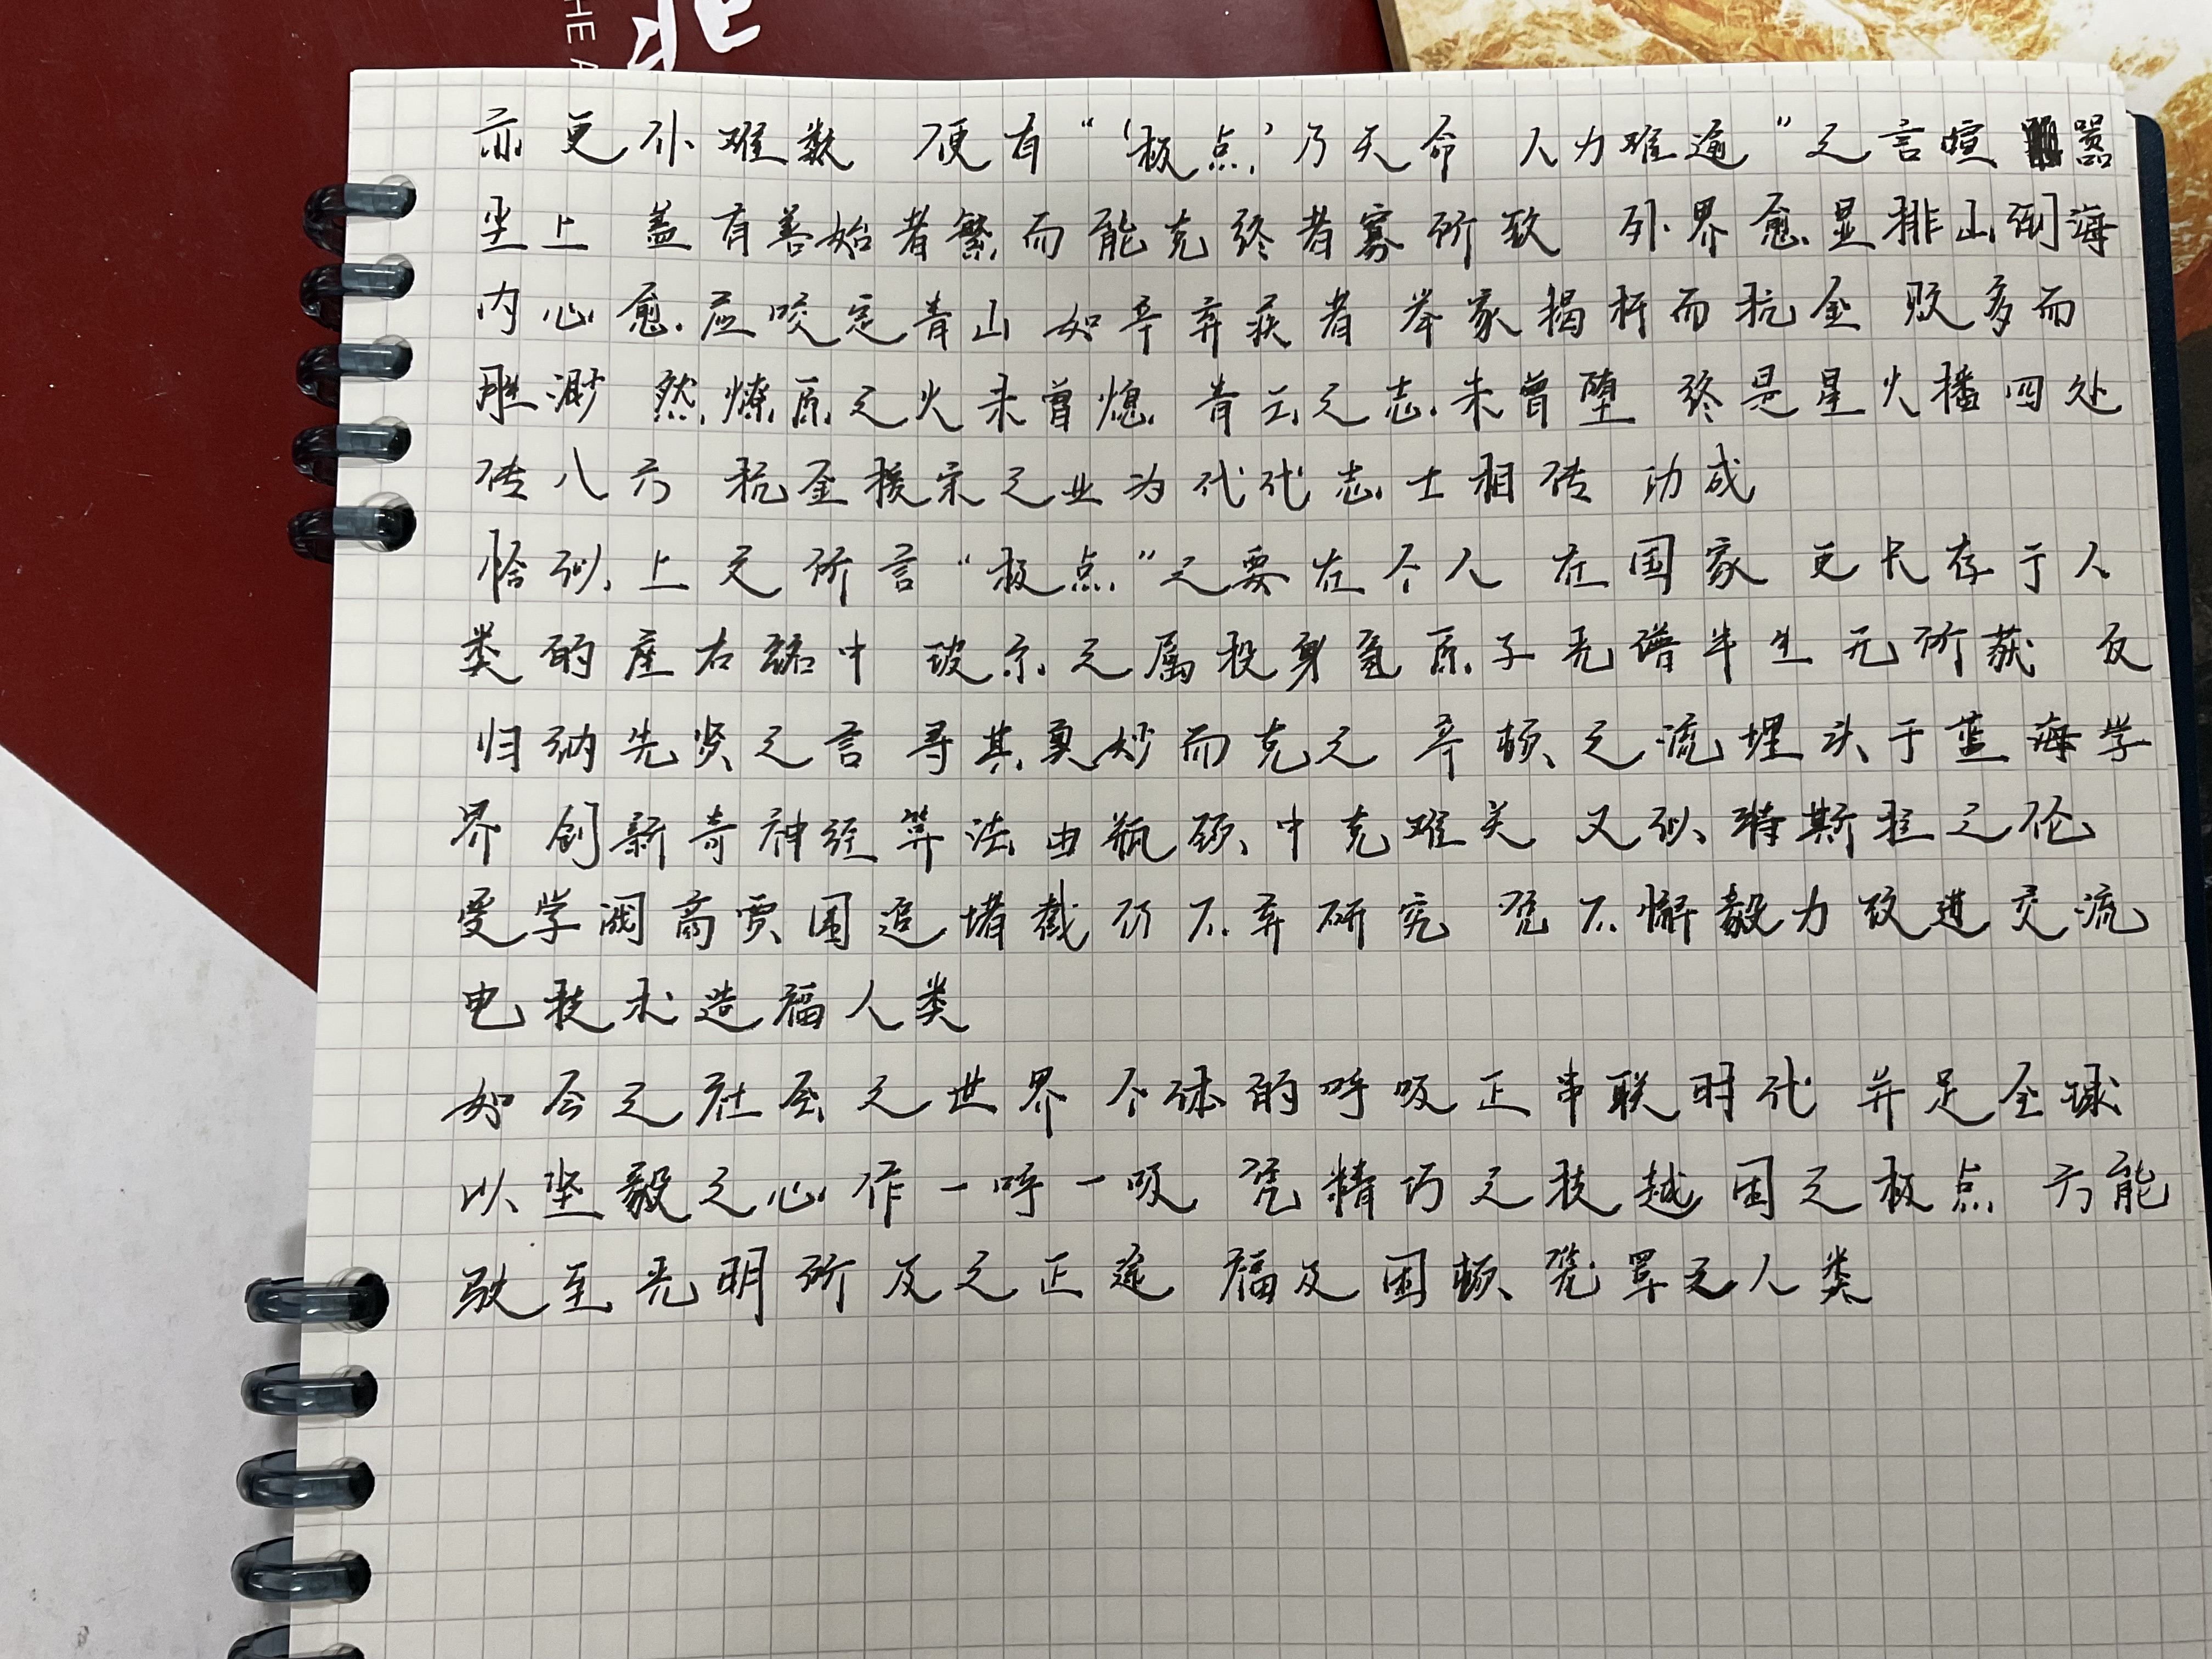 HE A
亦更仆难数 便有“‘极点’乃天命 人力难逾”之言喧嚣
尘上 盖有善始者繁而能克终者寡所致 外界愈显排山倒海
内心愈应咬定青山 如辛弃疾者 举家揭杆而抗金 败多而
胜渺 然燎原之火未曾熄 青云之志未曾堕 终是星火播四处
传八方 抗金援宋之业为代代志士相传 功成
恰似上文所言“极点”之要在个人 在国家 更长存于人
类的座右铭中 玻尔之属投身氢原子光谱半生无所获 反
归纳先贤之言 寻其奥妙而克之 辛顿之流埋头于蓝海学
界 创新奇神经算法由瓶颈中克难关 又似特斯拉之伦
受学阀商贾围追堵截仍不弃研究 凭不懈毅力改进交流
电技术造福人类
如今之社会之世界 个体的呼吸正串联时代 并足全球
以坚毅之心作一呼一吸 凭精巧之技越困之极点 方能
驶至光明所及之正途 福及困顿笼罩之人类